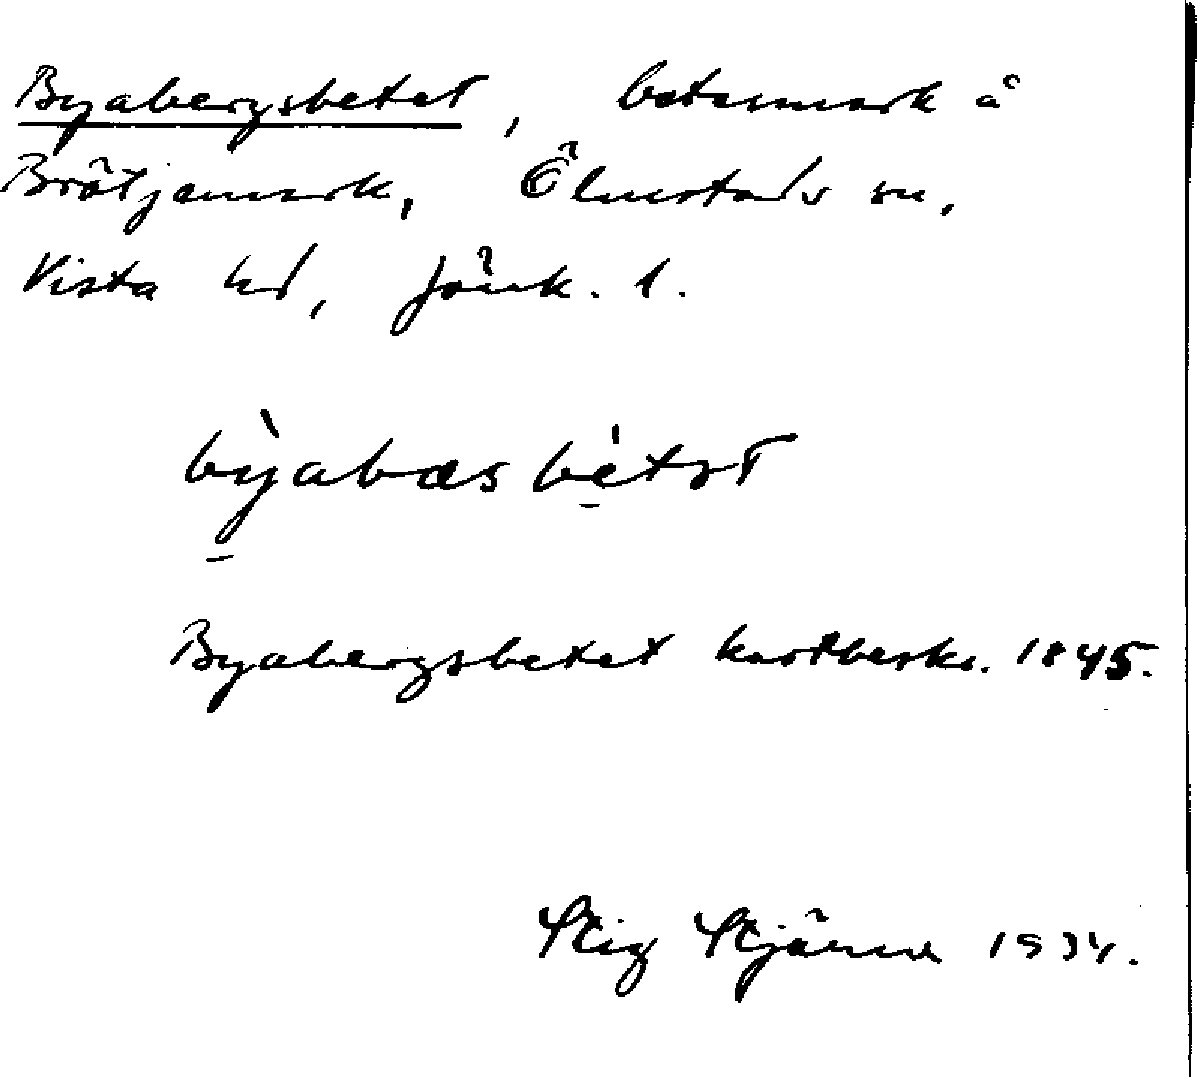 Byabergsbetet, betesmark å
Brötjemark, Ölmstads sn,
Vista hd, Jönk. l.
bỳabæs bétət
Byabergsbetet kartbeskr. 1845.
Stig Stjärne 1934.